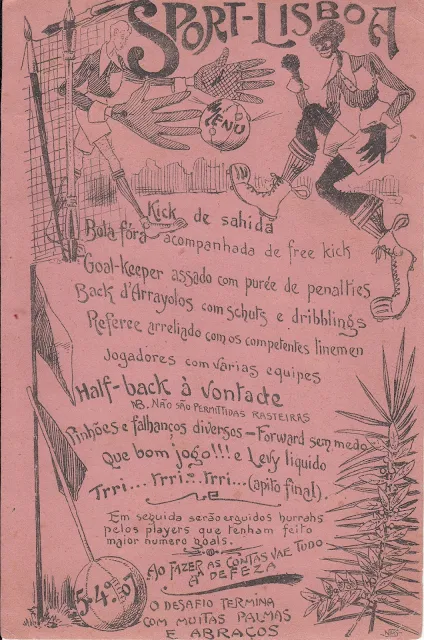 SPORT-LISBOA
MENU
Kick de sahida
Bola fóra acompanhada de free kick
Goal-Keeper assado com purée de penalties
Back d'Arrayolos com schuts e dribblings
Referee arreliado com os competentes linemen
Jogadores com varias equipes
Half-back á vontade
NB. NÃO SÃO PERMITTIDAS RASTEIRAS
Pinhões e falhanços diversos - Forward sem medo
Que bom jogo!!! e Levy liquido
Trri... Trri... Trri... (apito final).
Em seguida serão erguidos hurrahs
pelos players que tenham feito
maior numero goals.
AO FAZER AS CONTAS VAE TUDO
Á DEFEZA
5-4º-07
O DESAFIO TERMINA
COM MUITAS PALMAS
E ABRAÇOS